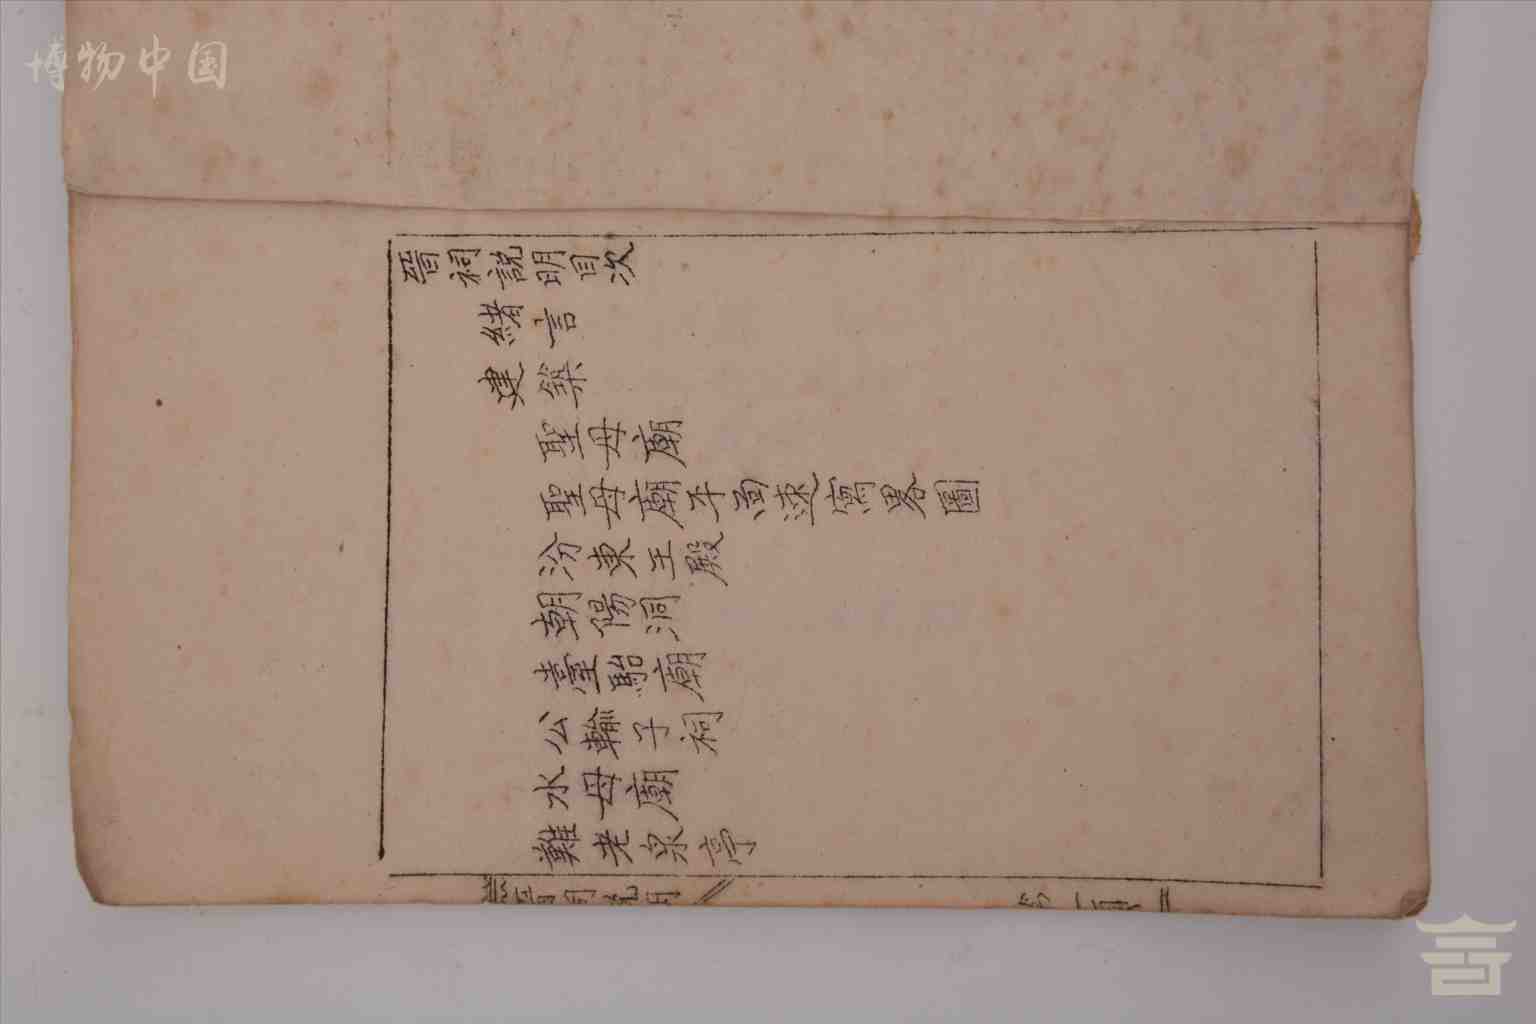 博物中国
晉祠說明目次
緒言
建築
聖母廟
聖母廟平面速寫畧圖
汾東王殿
朝陽洞
臺駘廟
公輸子祠
水母廟
難老泉亭